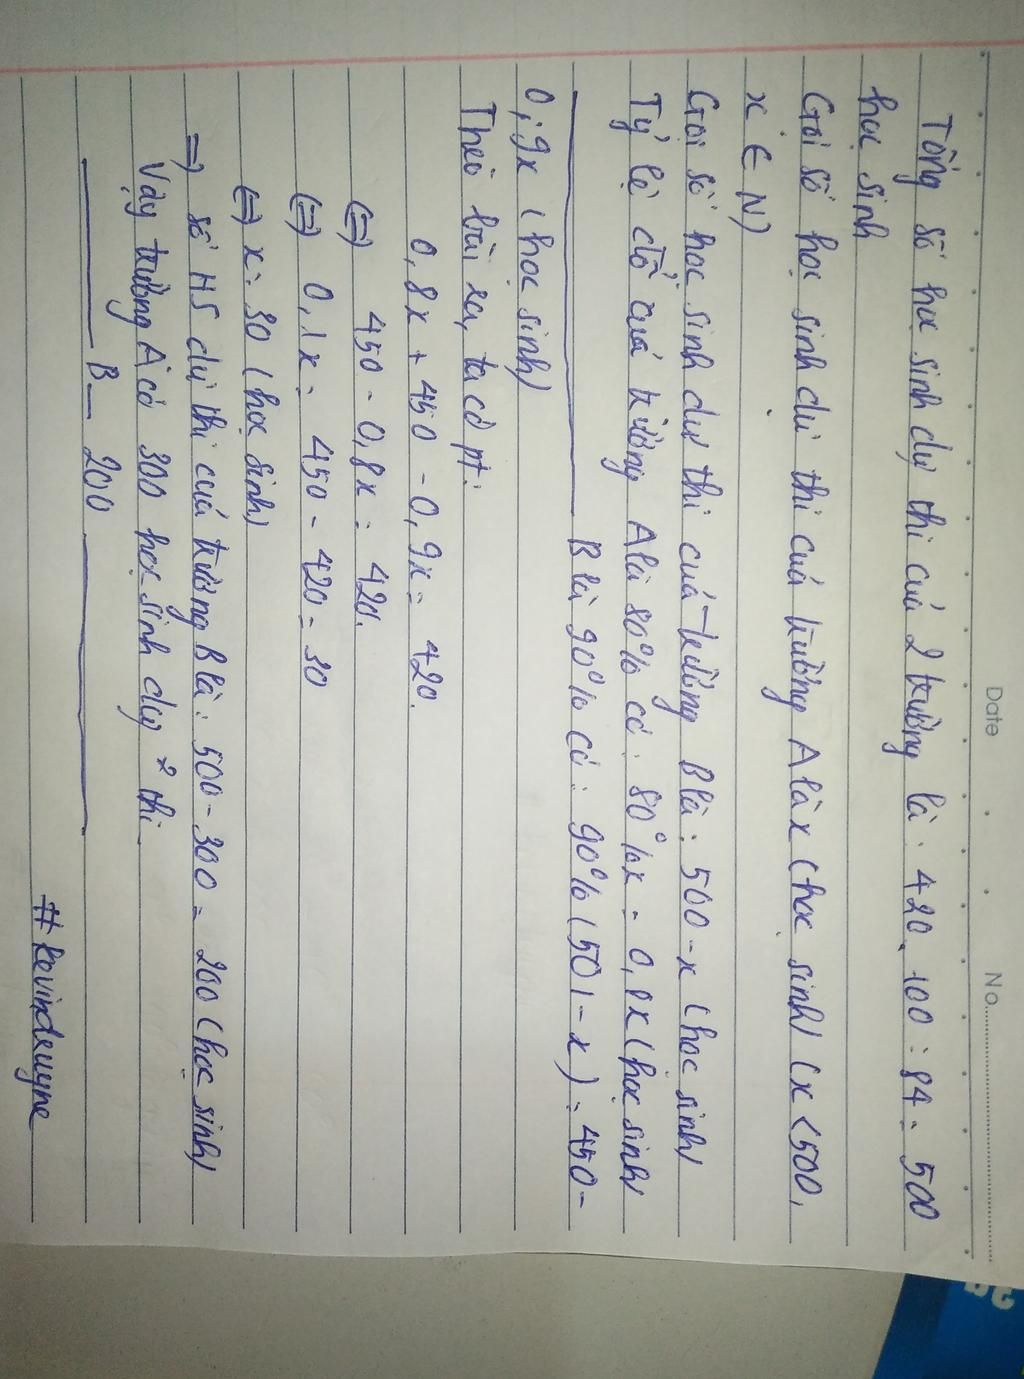 Date
No.
Tổng số học sinh dự thi của 2 trường là: 420. 100 : 84 = 500
học sinh
Gọi số học sinh dự thi của trường A là x (học sinh) (x < 500,
x ∈ N)
Gọi số học sinh dự thi của trường B là: 500 - x (học sinh)
Tỷ lệ đỗ của trường A là 80% có: 80%x = 0,8x (học sinh)
B là 90% có: 90% (501 - x) = 450 -
0,9x (học sinh)
Theo bài ra, ta có pt:
0,8x + 450 - 0,9x = 420.
(=) 450 - 0,8x = 420.
(=) 0,1x = 450 - 420 = 30
(=) x = 30 (học sinh)
=) số HS dự thi của trường B là: 500 - 300 = 200 (học sinh)
Vậy trường A có 300 học sinh dự thi
B 200
#kevindeuyne